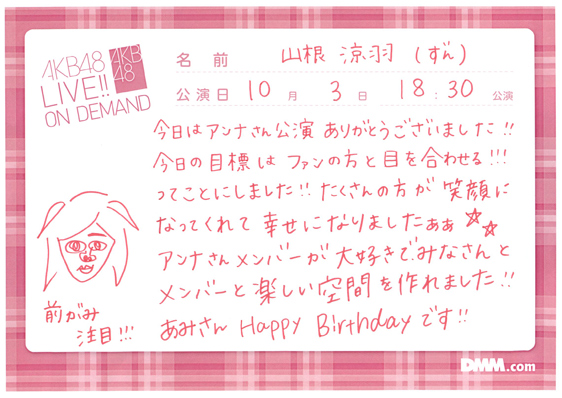 AKB48
LIVE!!
ON DEMAND
AKB
48
名前 山根 涼羽 (ずん)
公演日 10月 3日 18:30 公演
今日はアンナさん公演 ありがとうございました!!
今日の目標は ファンの方と目を合わせる!!!
ってことにしました!! たくさんの方が 笑顔に
なってくれて 幸せになりましたぁぁ ☆☆
アンナさんメンバーが大好きでみなさんと
メンバーと楽しい空間を作れました!!
あみさん Happy Birthdayです!!
前がみ
注目!!!
DMM.com